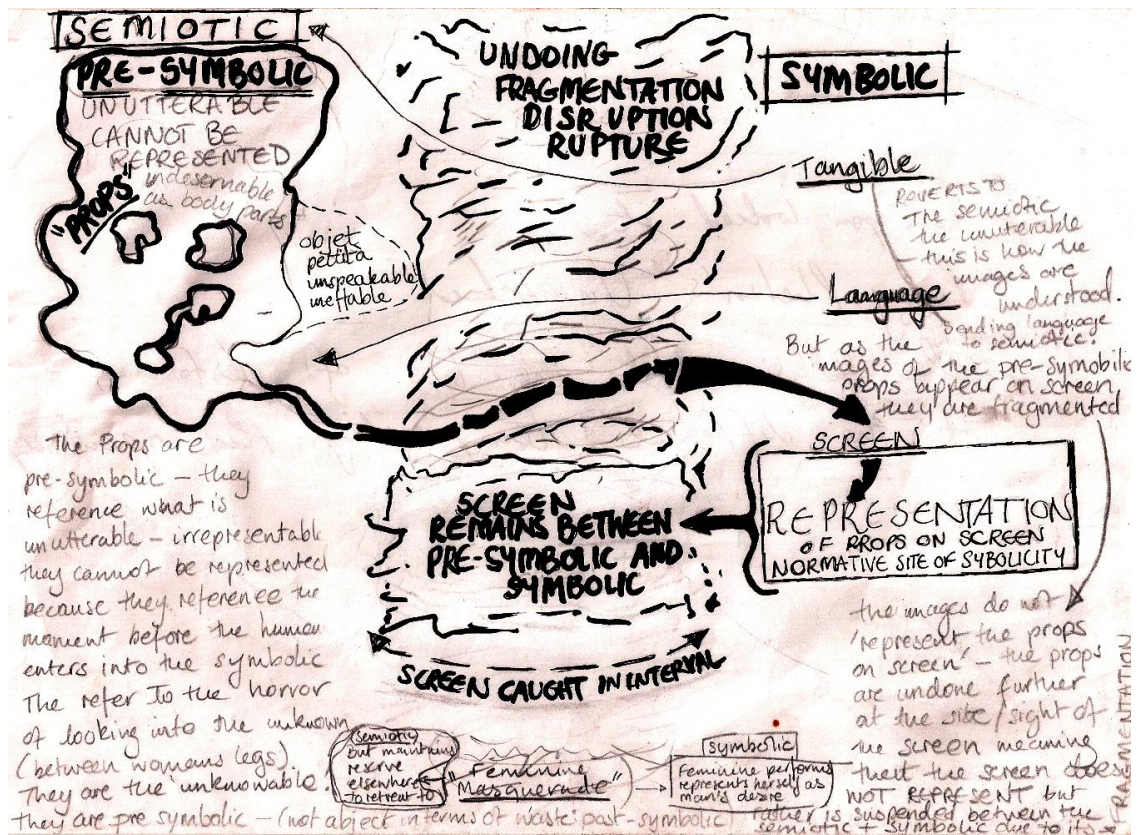 SEMIOTIC
PRE-SYMBOLIC
UNUTTERABLE
CANNOT BE
REPRESENTED
"PROPS"
undesernable
as body parts
objet
petita
unspeakable
ineffable
UNDOING
FRAGMENTATION
DISRUPTION
RUPTURE
SYMBOLIC
Tangible
ROVERTS TO
The semiotic
the unuterable
- this is how the
images are
understood.
Language
Sending language
to semiotic.
But as the
images of the pre-symobilic
props appear on screen
they are fragmented
SCREEN
REPRESENTATION
OF PROPS ON SCREEN
NORMATIVE SITE OF SYBOLICITY
SCREEN
REMAINS BETWEEN
PRE-SYMBOLIC AND
SYMBOLIC
SCREEN CAUGHT IN INTERVAL
The Props are
pre-symbolic - they
reference what is
unutterable - irrepresentable
they cannot be represented
because they reference the
moment before the human
enters into the symbolic
The refer To the horror
of looking into the unknown
(between womans legs).
They are the unknowable.
They are pre symbolic - (not abject in terms of waste: post-symbolic)
(semiotic)
But maintains
reserve
elsewhere
to retreat to
"Feminine
Masquerade"
symbolic
Feminine performs
represents herself as
man's desire
the images do not
'represent the props
on screen' - the props
are undone further
at the site/sight of
the screen meaning
that the screen does
NOT REPRESENT but
rather is suspended between the
semiotic + symbolic due to its
FRAGMENTATION